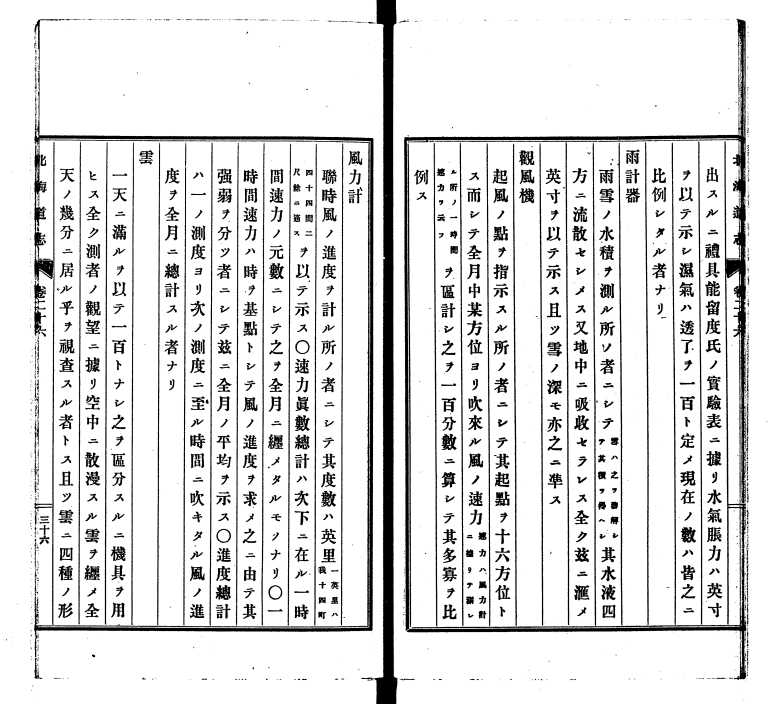 出スルニ禮具能留度氏ノ實驗表ニ據リ水氣脹力ハ英寸
ヲ以テ示シ濕氣ハ透了ヲ一百ト定メ現在ノ數ハ皆之ニ
比例シタル者ナリ
雨計器
雨雪ノ水積ヲ測ル所ソ者ニシテ雪ハ之ヲ溶解シテ其積ヲ得ヘシ其水液四
方ニ流散セシメス又地中ニ吸收セラレス全ク玆ニ滙メ
英寸ヲ以テ示ス且ツ雪ノ深モ亦之ニ準ス
觀風機
起風ノ點ヲ指示スル所ノ者ニシテ其起點ヲ十六方位ト
ス而シテ全月中某方位ヨリ吹來ル風ノ速力速力ハ風力計ニ據リテ測レ
ル所ノ一時間速力ヲ云フヲ區計シ之ヲ一百分數ニ算シテ其多寡ヲ比
例ス
風力計
聯時風ノ進度ヲ計ル所ノ者ニシテ其度數ハ英里一英里ハ我十四町
四十四間二尺餘ニ適スヲ以テ示ス〇速力眞數總計ハ次下ニ在ル一時
間速力ノ元數ニシテ之ヲ全月ニ纒メタルモノナリ〇一
時間速力ハ時ヲ基點トシテ風ノ進度ヲ求メ之ニ由テ其
强弱ヲ分ツ者ニシテ玆ニ全月ノ平均ヲ示ス〇進度總計
ハ一ノ測度ヨリ次ノ測度ニ至ル時間ニ吹キタル風ノ進
度ヲ全月ニ總計スル者ナリ
雲
一天ニ滿ルヲ以テ一百トナシ之ヲ區分スルニ機具ヲ用
ヒス全ク測者ノ觀望ニ據リ空中ニ散漫スル雲ヲ纒メ全
天ノ幾分ニ居ル乎ヲ視査スル者トス且ツ雲ニ四種ノ形
北海道志
三十六